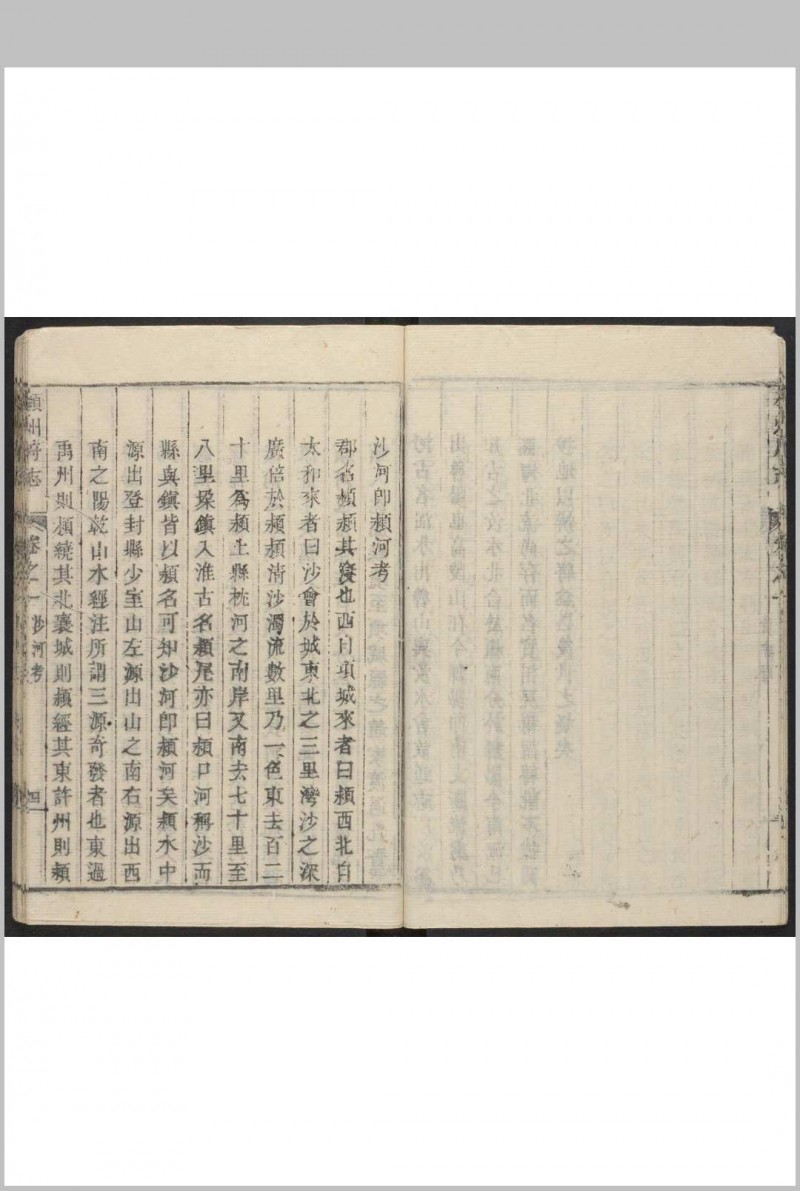 沙河即潁河考
郡名潁潁其寖也西自項城來者曰潁西北自
太和來者曰沙會於城東北之三里灣沙之深
廣倍於潁潁清沙濁流數里乃一色東去百二
十里爲潁上縣枕河之南岸又南去七十里至
八里垜鎮入淮古名潁尾亦曰潁口河稱沙而
縣與鎮皆以潁名可知沙河即潁河矣潁水中
源出登封縣少室山左源出山之南右源出西
南之陽乾山水經注所謂三源奇發者也東過
禹州則潁繞其北襄城則潁經其東許州則潁
潁州府志 卷之一 沙河考 四